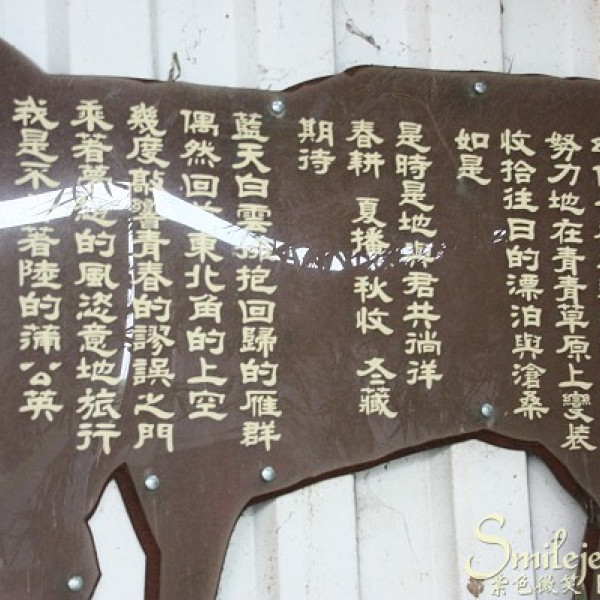 我是不著陸的蒲公英
乘著夢想的風恣意地旅行
幾度敲響青春的謬誤之門
偶然回東北角的上空
藍天白雲擁抱回歸的雁群
期待
春耕 夏播 秋收 冬藏
是時是地與君共徜徉
如是
收拾往日的漂泊與滄桑
努力地在青青草原上變裝
Smileje
紫色微笑